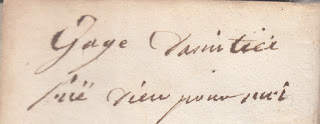 Gage damitié
prié dieu pour moi